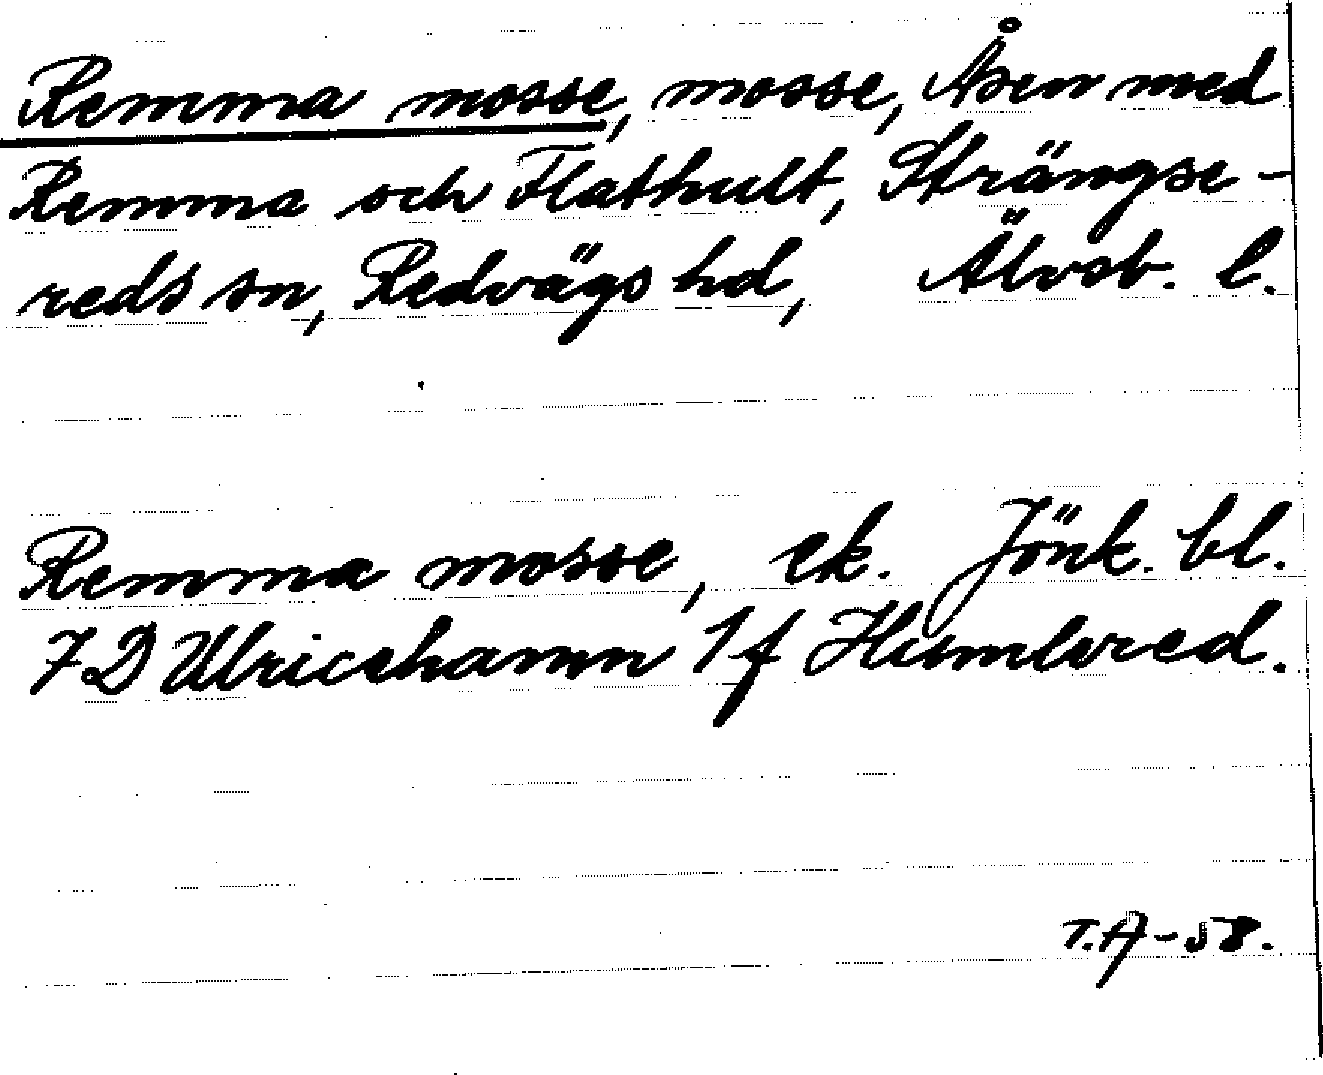 Remma mosse, mosse, Åsen med
Remma och Flathult, Strängse-
reds sn, Redvägs hd, Älvsb. l.
Remma mosse, ek. Jönk. bl.
7D Ulricehamn 1f Humlered.
T.A-58.